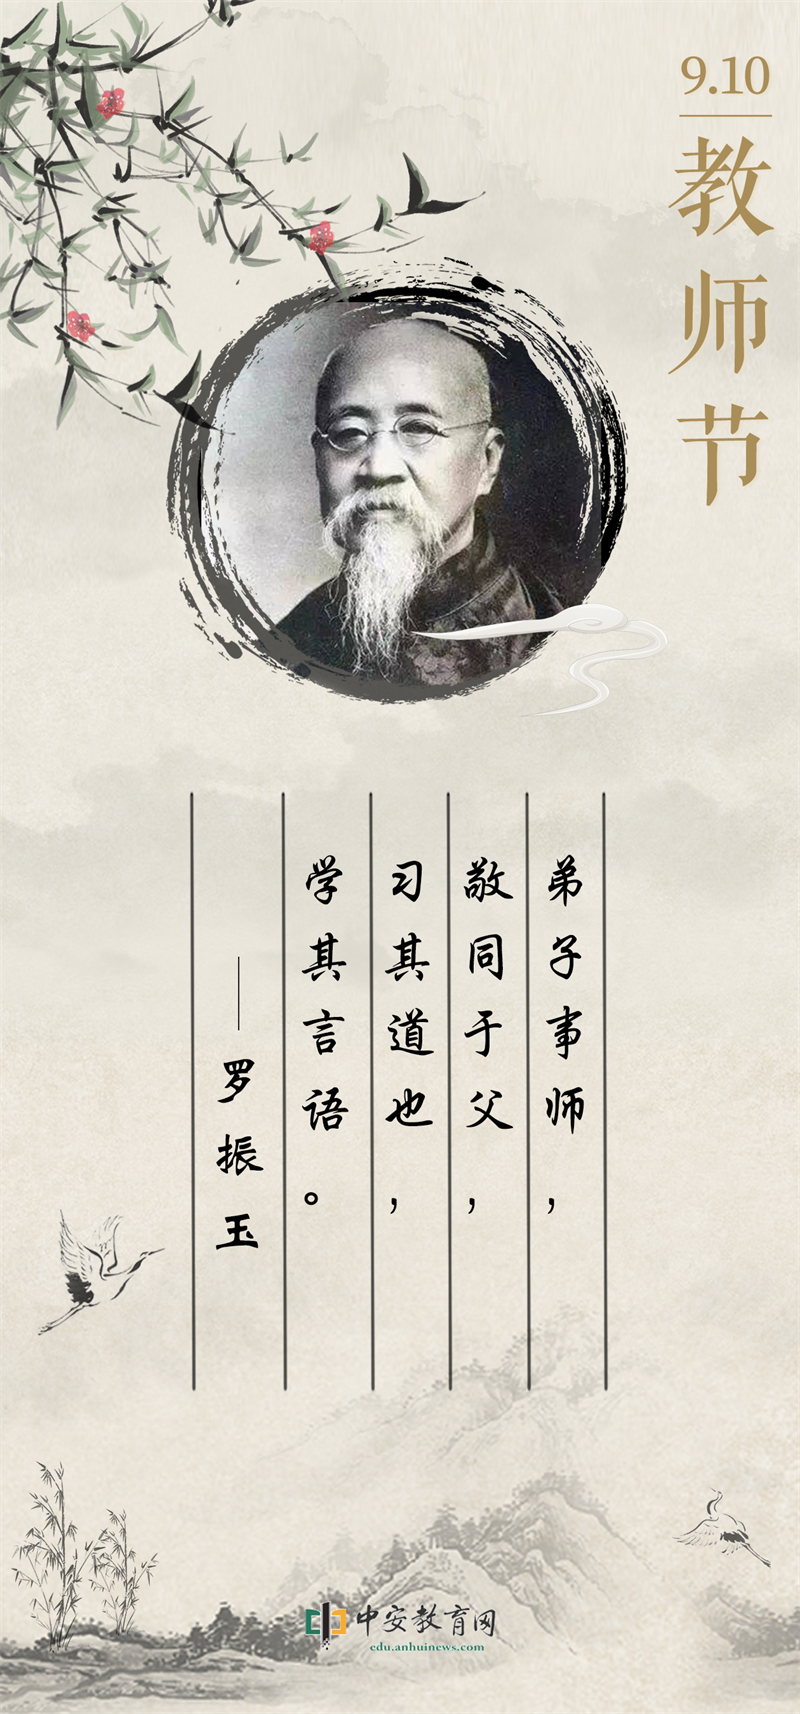 9.10
教师节
弟子事师，
敬同于父，
习其道也，
学其言语。
——罗振玉
中安教育网
edu.anhuinews.com